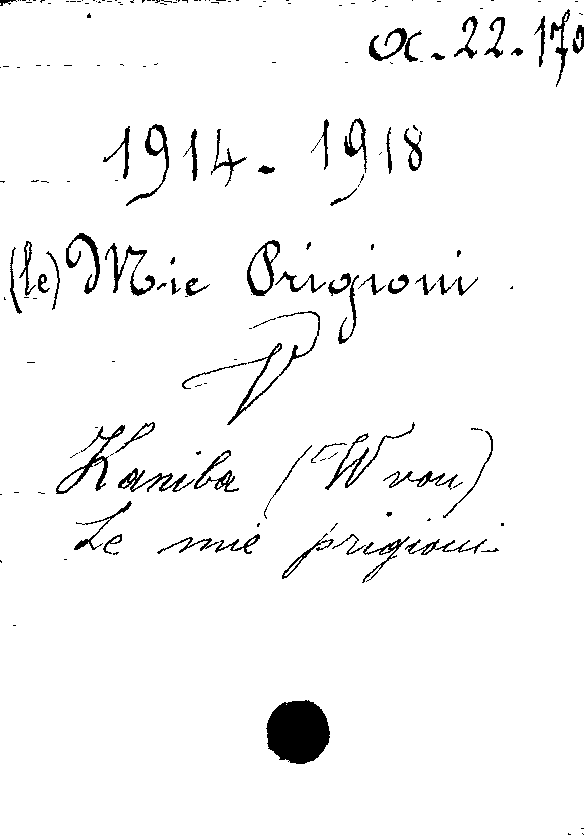 α. 22. 170
1914 - 1918
(le) Mie Prigioni.
V
Kaniba (W von)
Le mie prigioni